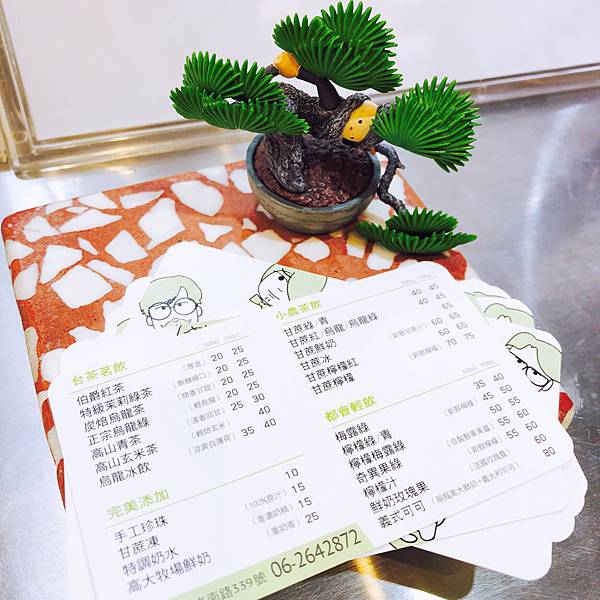 台茶茗飲 500cc 700cc
伯爵紅茶 (厚道) 20 25
特級茉莉綠茶 (無糖順口) 20 25
炭焙烏龍茶 (焙香甘甜) 20 25
正宗烏龍綠 (輕烏龍) 20 25
高山青茶 (清香回甘) 25 30
高山玄米茶 (輕焙玄米) 40
烏龍冰飲 (涼爽白薄荷) 35 40
完美添加
手工珍珠 10
甘蔗凍 (100%原汁) 15
特調奶水 (香濃奶精) 15
高大牧場鮮奶 (重奶香) 25
小農茶飲 500cc 700cc
甘蔗綠/青 40 45
甘蔗紅/烏龍/烏龍綠 40 45
甘蔗鮮奶
甘蔗冰 (新鮮甘蔗汁) 60 65
甘蔗檸檬紅 60 65
甘蔗檸檬 (新鮮檸檬) 70 75
都會輕飲 500cc 700cc
梅露綠 35 40
檸檬綠/青 45 50
檸檬梅露綠 (新鮮檸檬) 50 55
奇異果綠 (自製鮮果果醬) 55
檸檬汁 (新鮮檸檬)
鮮奶玫瑰果 (法國玫瑰露) 60
義式可可 (兩瓶高大鮮奶+義大利可可) 80
南路339號 06-2642872